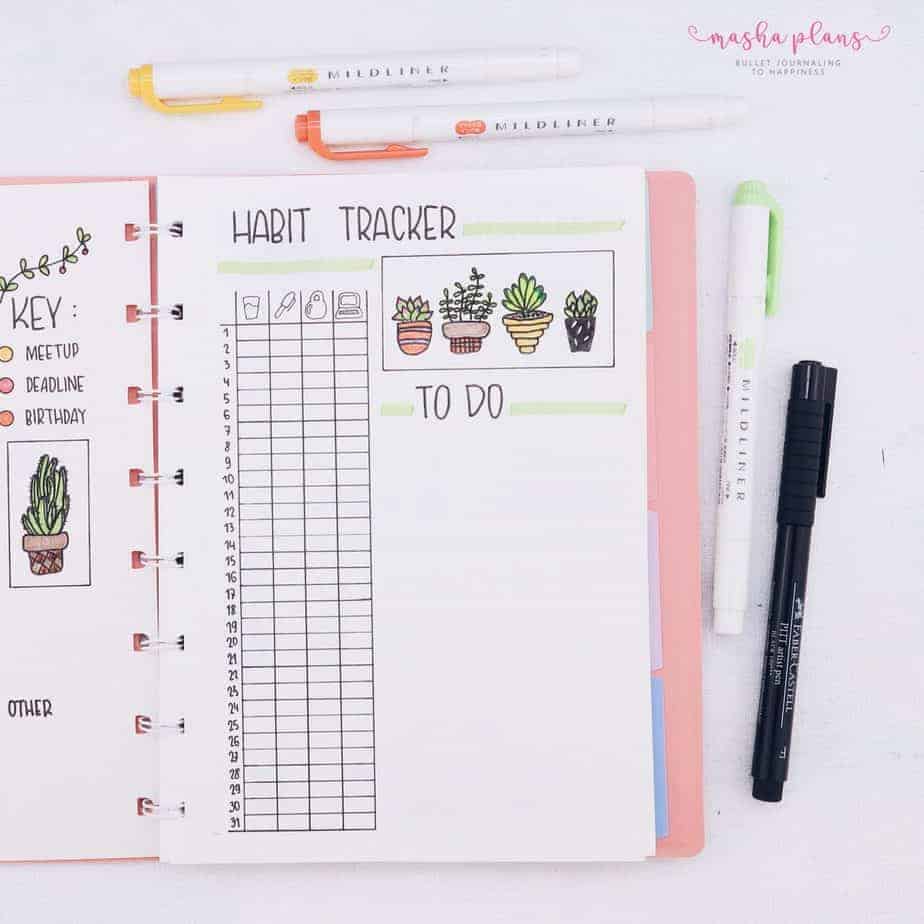 masha plans
BULLET JOURNALING
TO HAPPINESS
MILDLINER
MILDLINER
KEY:
MEETUP
DEADLINE
BIRTHDAY
OTHER
HABIT TRACKER
1
2
3
4
5
6
7
8
9
10
11
12
13
14
15
16
17
18
19
20
21
22
23
24
25
26
27
28
29
30
31
TO DO
MILDLINER
FABER-CASTELL
PITT artist pen
F